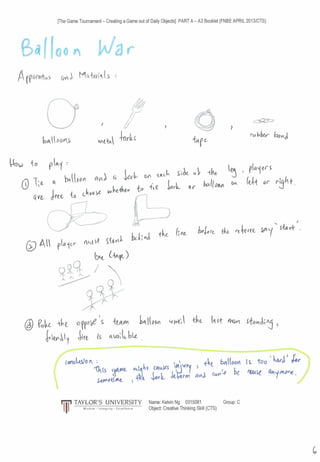 [The Game Tournament – Creating a Game out of Daily Objects] PART A – A3 Booklet (FNBE APRIL 2013/CTS).
Balloon War
Apparatus and Materials :
balloons , metal forks , tape , rubber band
How to play :
① Tie a balloon and a fork on each side of the leg , players
are free to choose whether to tie fork or balloon on left or right.
② All player must stand behind the line before the referee say "start".
line (tape)
③ Poke the oppose's team balloon until the last man standing ,
friendly fire is available.
conclusion :
This game might causes injury , the balloon is too "hard" for
sometime , the fork deform and can't be reuse anymore.
TAYLOR'S UNIVERSITY
Wisdom · Integrity · Excellence
Name: Kelvin Ng 0315081 Group: C
Object: Creative Thinking Skill (CTS)
6